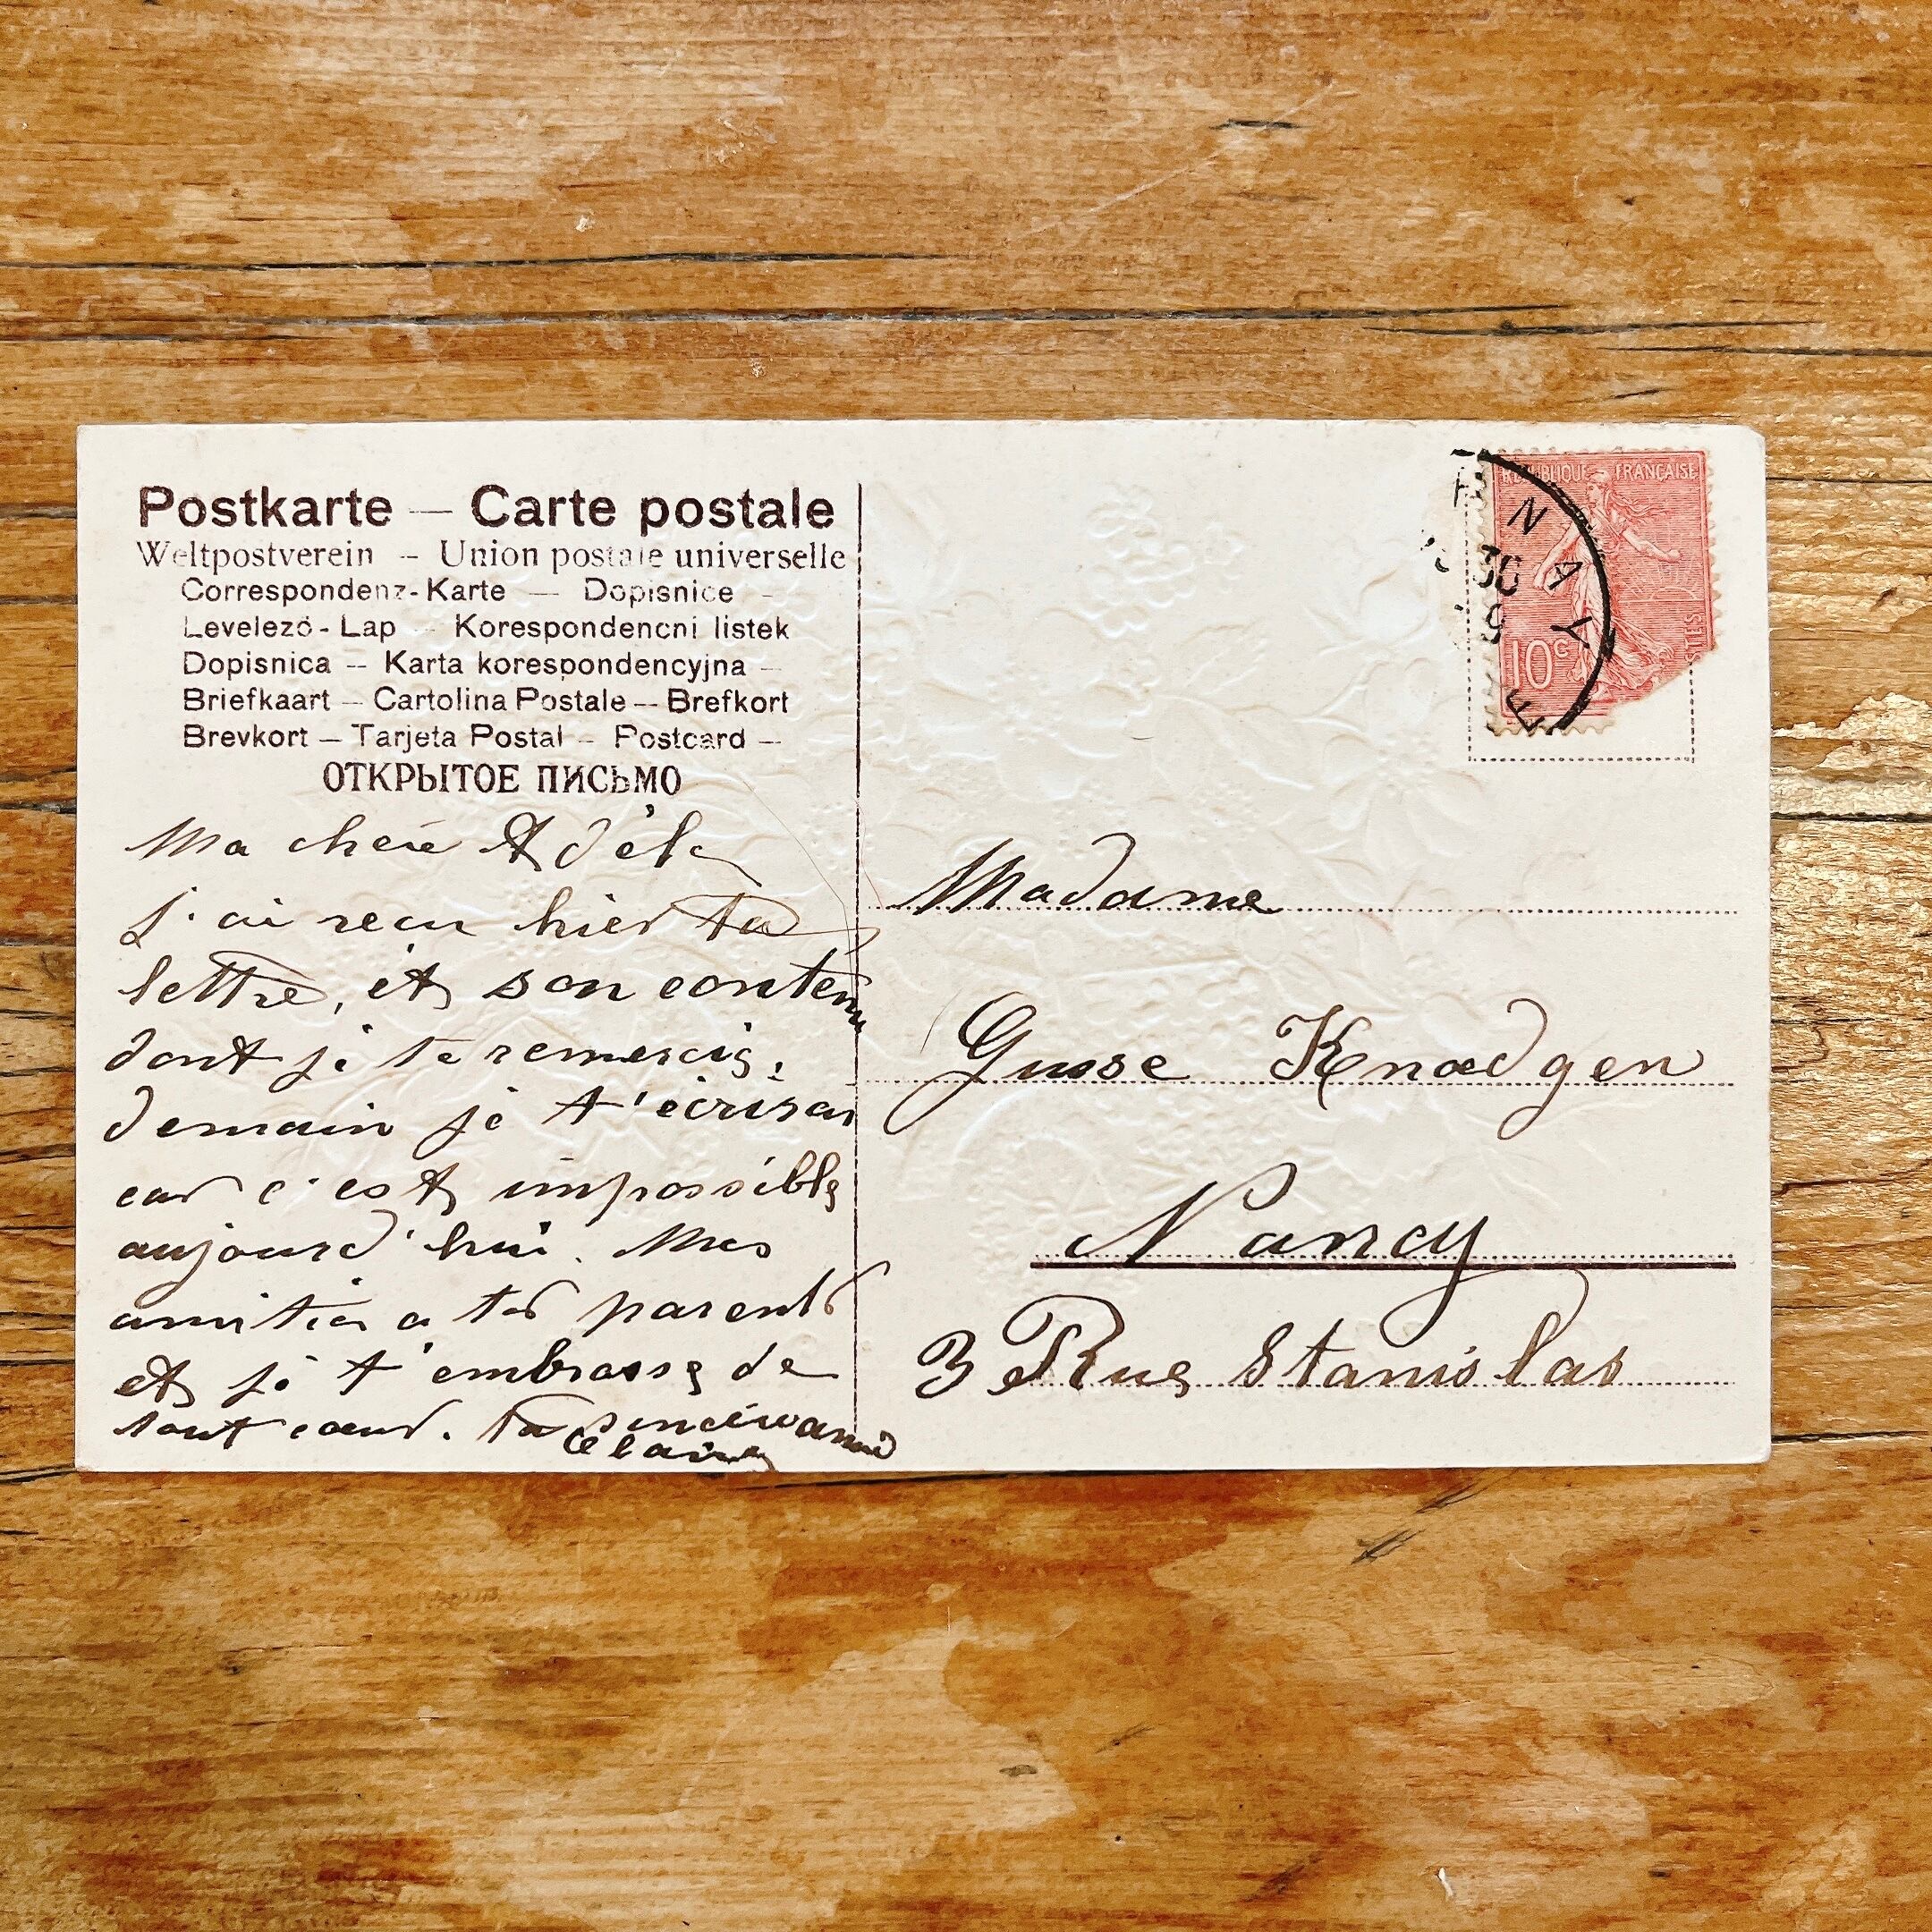 Postkarte — Carte postale
Weltpostverein — Union postale universelle
Correspondenz-Karte — Dopisnice —
Levelező-Lap — Korespondencni listek
Dopisnica — Karta korespondencyjna —
Briefkaart — Cartolina Postale — Brefkort
Brevkort — Tarjeta Postal — Postcard —
ОТКРЫТОЕ ПИСЬМО
Ma chere Adèle
j'ai recu hier ta
lettre, et son contenu
dont je te remercie,
demain je t'écrirai
car c'est impossible
aujourd'hui. Mes
amitiés a tes parents
et je t'embrasse de
tout cœur. Ta
Claire
REPUBLIQUE FRANÇAISE
10c
NAY
30
Madame
Gusse Knœdgen
Nancy
3 Rue Stanislas